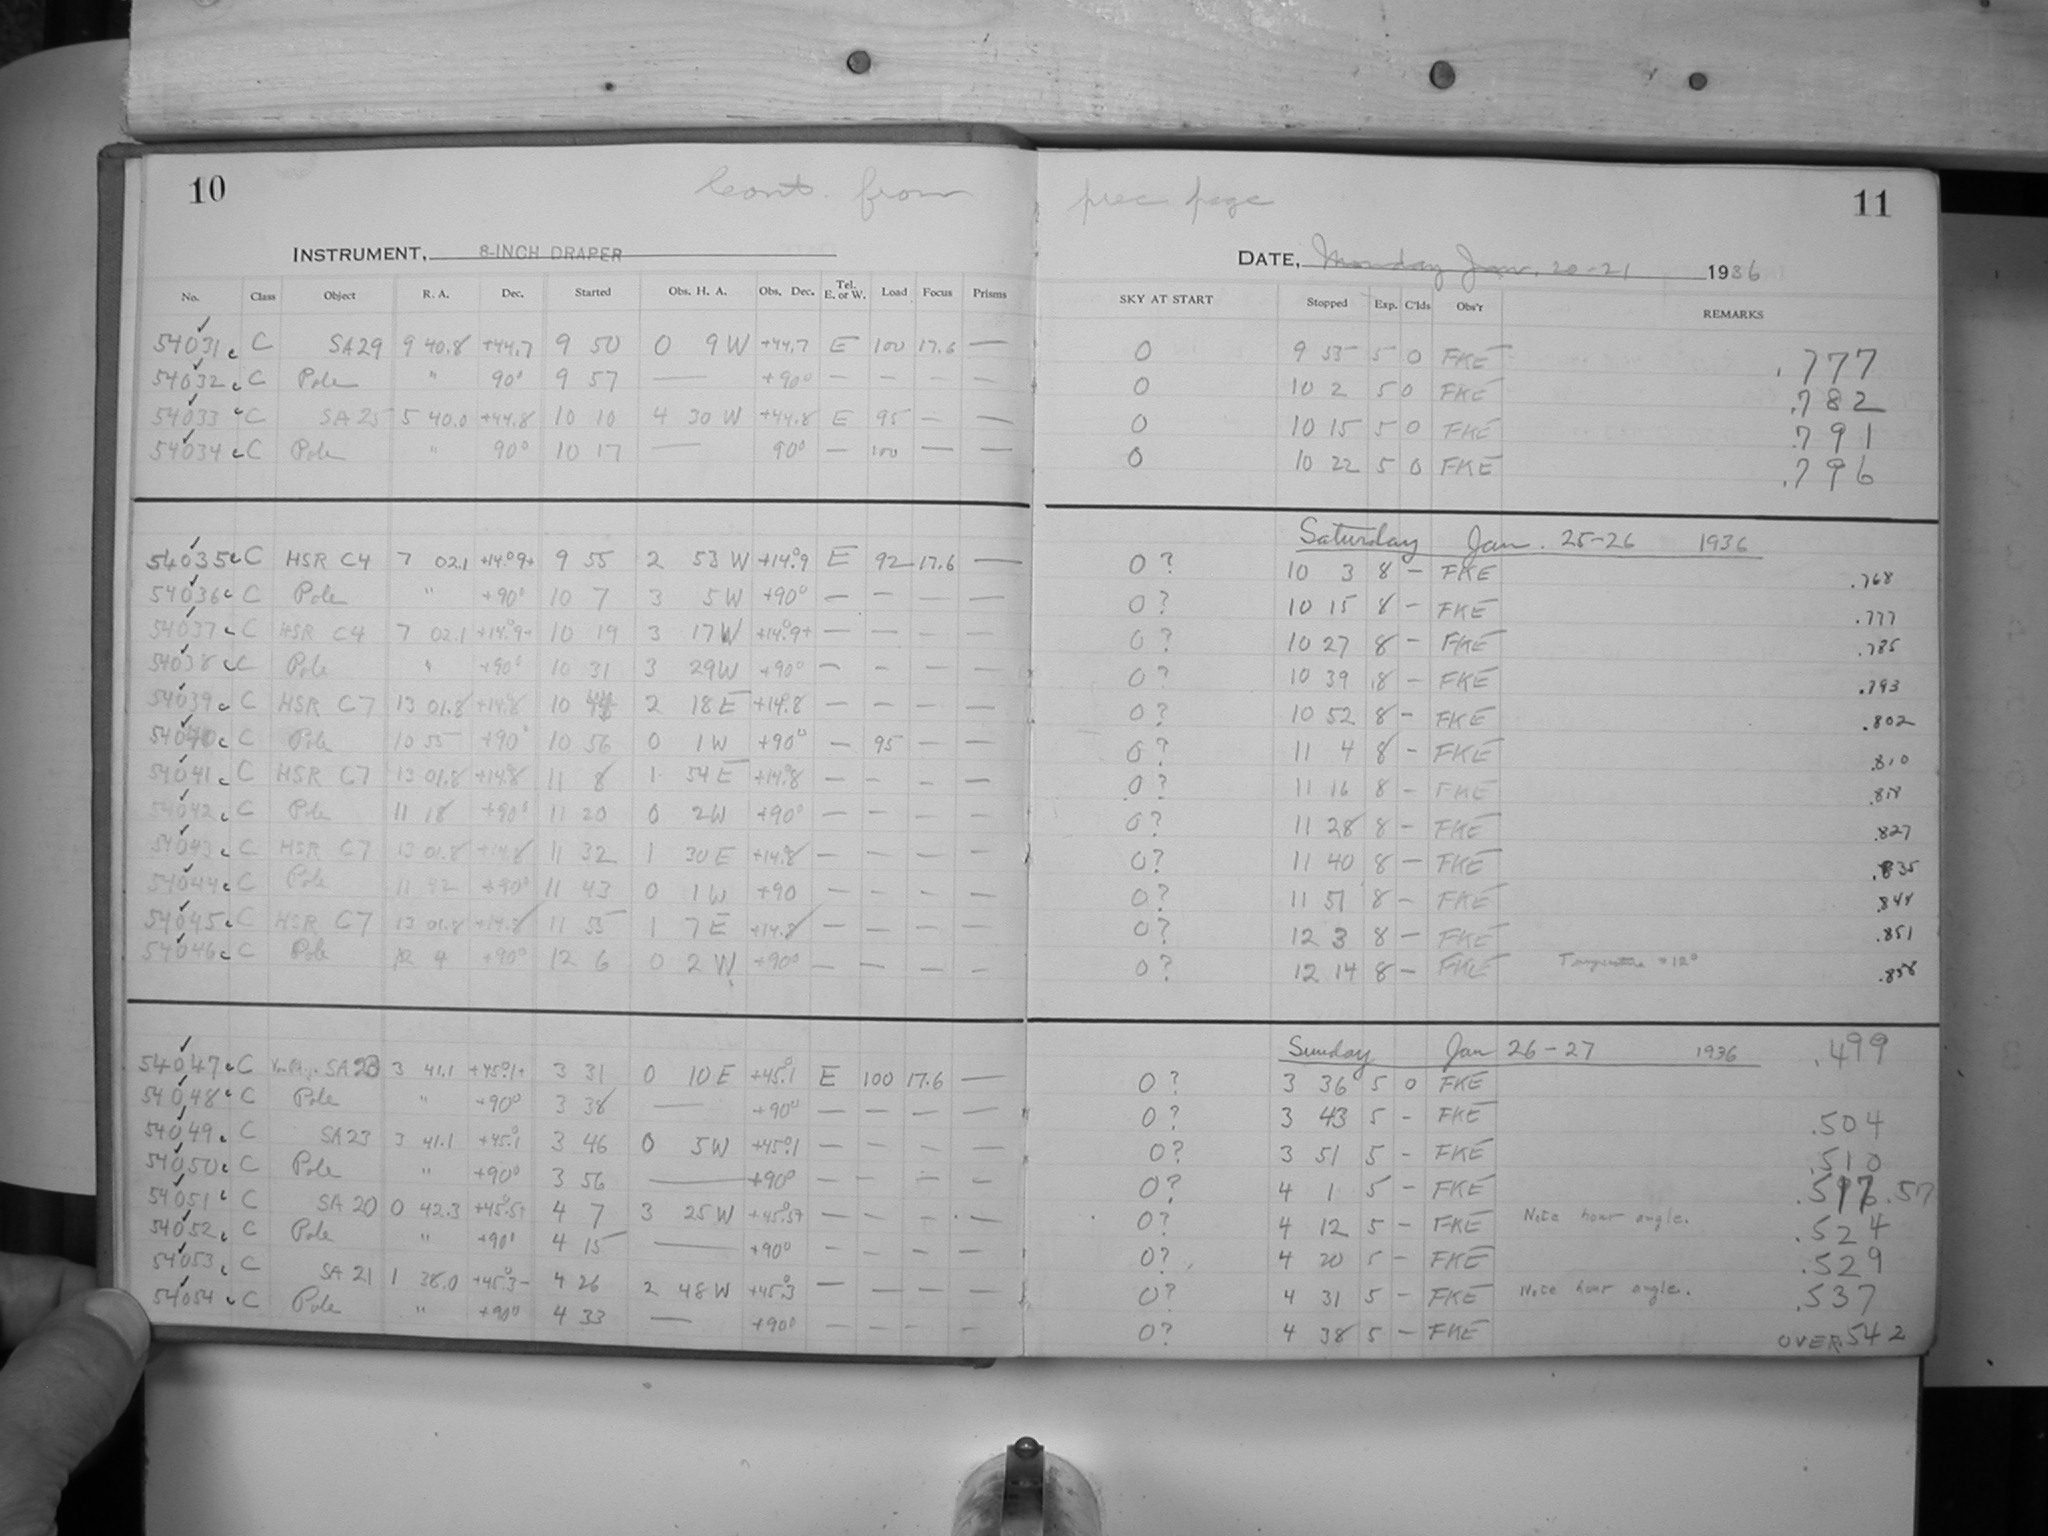 10 Cont. from prec page 11
INSTRUMENT, 8-INCH DRAPER DATE, Monday Jan. 20-21 1936
No. Class Object R. A. Dec. Started Obs. H. A. Obs. Dec. Tel. E. or W. Load Focus Prisms SKY AT START Stopped Exp. C'lds Obs'r REMARKS
54031 c C SA29 9 40.8 +44.7 9 50 0 9 W +44.7 E 100 17.6 — 0 9 55 5 0 FKE .777
54032 c C Pole " 90° 9 57 — +90° — — — — 0 10 2 5 0 FKE .782
54033 c C SA25 5 40.0 +44.8 10 10 4 30 W +44.8 E 95 — — 0 10 15 5 0 FKE .791
54034 c C Pole " 90° 10 17 — 90° — 100 — — 0 10 22 5 0 FKE .796
Saturday Jan. 25-26 1936
54035 c C HSR C4 7 02.1 +14°.9+ 9 55 2 53 W +14°.9 E 92 17.6 — 0? 10 3 8 — FKE .768
54036 c C Pole " +90° 10 7 3 5 W +90° — — — — 0? 10 15 8 — FKE .777
54037 c C HSR C4 7 02.1 +14°.9+ 10 19 3 17 W +14°.9+ — — — — 0? 10 27 8 — FKE .785
54038 c C Pole " +90° 10 31 3 29 W +90° — — — — 0? 10 39 8 — FKE .793
54039 c C HSR C7 13 01.8 +14.8 10 44 2 18 E +14.8 — — — — 0? 10 52 8 — FKE .802
54040 c C Pole 10 55 +90° 10 56 0 1 W +90° — 95 — — 0? 11 4 8 — FKE .810
54041 c C HSR C7 13 01.8 +14.8 11 8 1 54 E +14°.8 — — — — 0? 11 16 8 — FKE .818
54042 c C Pole 11 18 +90° 11 20 0 2 W +90° — — — — 0? 11 28 8 — FKE .827
54043 c C HSR C7 13 01.8 +14.8 11 32 1 30 E +14.8 — — — — 0? 11 40 8 — FKE .835
54044 c C Pole 11 42 +90° 11 43 0 1 W +90 — — — — 0? 11 51 8 — FKE .844
54045 c C HSR C7 13 01.8 +14.8 11 55 1 7 E +14.8 — — — — 0? 12 3 8 — FKE .851
54046 c C Pole 12 4 +90° 12 6 0 2 W +90° — — — — 0? 12 14 8 — FKE Temperature +12° .858
Sunday Jan 26-27 1936 .499
54047 c C SA23 3 41.1 +45°.1+ 3 31 0 10 E +45°.1 E 100 17.6 — 0? 3 36 5 0 FKE
54048 c C Pole " +90° 3 38 — +90° — — — — 0? 3 43 5 — FKE .504
54049 c C SA23 3 41.1 +45°.1 3 46 0 5 W +45°.1 — — — — 0? 3 51 5 — FKE .510
54050 c C Pole " +90° 3 56 — +90° — — — — 0? 4 1 5 — FKE .517
54051 c C SA20 0 42.3 +45°.5+ 4 7 3 25 W +45°.5+ — — — — 0? 4 12 5 — FKE Note hour angle. .524
54052 c C Pole " +90° 4 15 — +90° — — — — 0? 4 20 5 — FKE .529
54053 c C SA21 1 38.0 +45°.3- 4 26 2 48 W +45°.3 — — — — 0? 4 31 5 — FKE Note hour angle. .537
54054 c C Pole " +90° 4 33 — +90° — — — — 0? 4 38 5 — FKE OVER .542